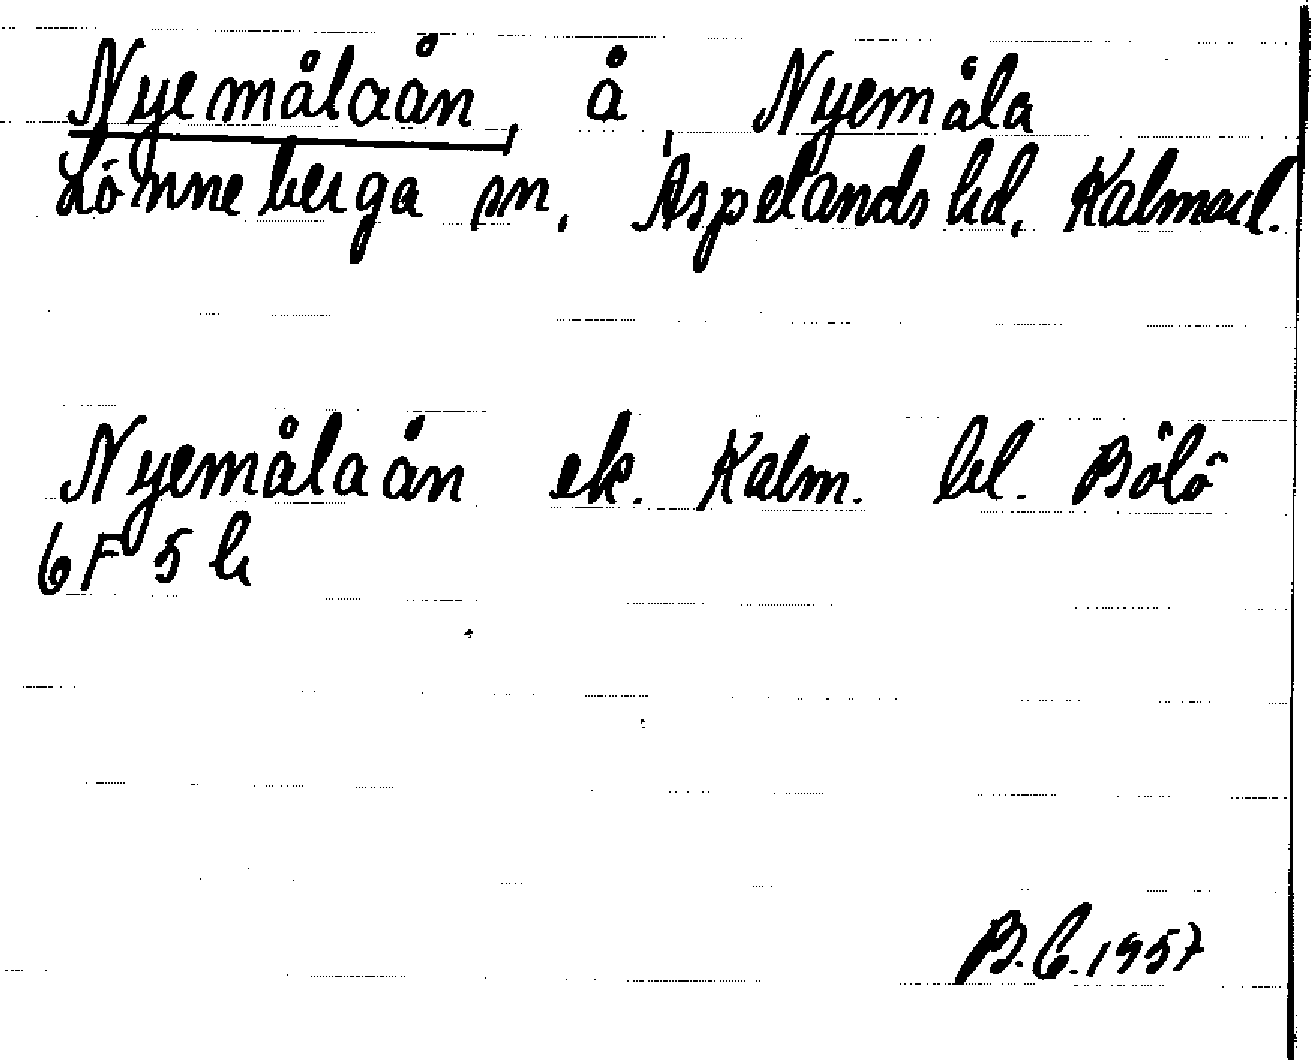 Nyemålaån, å, Nyemåla
Lönneberga sn. Aspelands hd. Kalmar l.
Nyemålaån ek. Kalm. bl. Bölö
6F 5 h
B.E. 1957